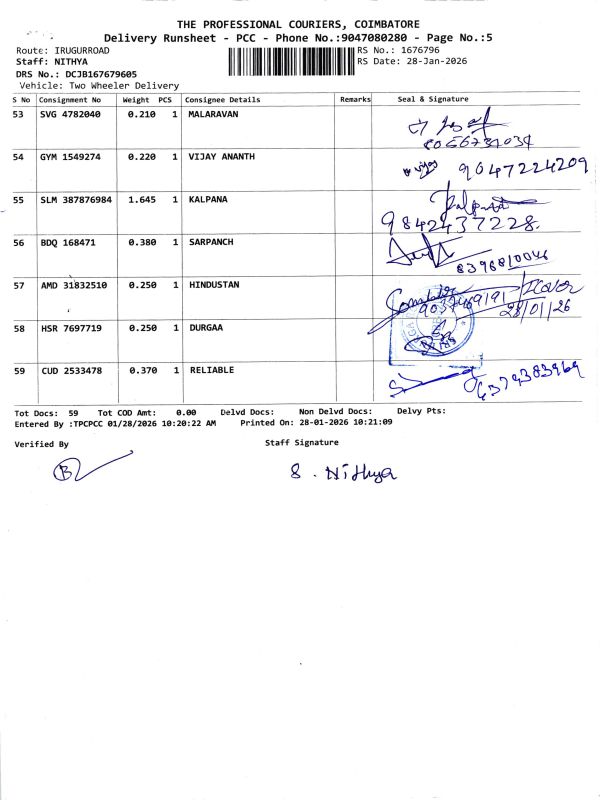 THE PROFESSIONAL COURIERS, COIMBATORE
Delivery Runsheet - PCC - Phone No.:9047080280 - Page No.:5
Route: IRUGURROAD
RS No.: 1676796
Staff: NITHYA
RS Date: 28-Jan-2026
DRS No.: DCJB167679605
Vehicle: Two Wheeler Delivery
S No Consignment No Weight PCS Consignee Details Remarks Seal & Signature
53 SVG 4782040 0.210 1 MALARAVAN
54 GYM 1549274 0.220 1 VIJAY ANANTH 9047224209
55 SLM 387876984 1.645 1 KALPANA Kalpana
9842437228.
56 BDQ 168471 0.380 1 SARPANCH
8398810046
57 AMD 31832510 0.250 1 HINDUSTAN
28/01/26
58 HSR 7697719 0.250 1 DURGAA
59 CUD 2533478 0.370 1 RELIABLE 6374383969
Tot Docs: 59 Tot COD Amt: 0.00 Delvd Docs: Non Delvd Docs: Delvy Pts:
Entered By :TPCPCC 01/28/2026 10:20:22 AM Printed On: 28-01-2026 10:21:09
Verified By Staff Signature
S. Nithya